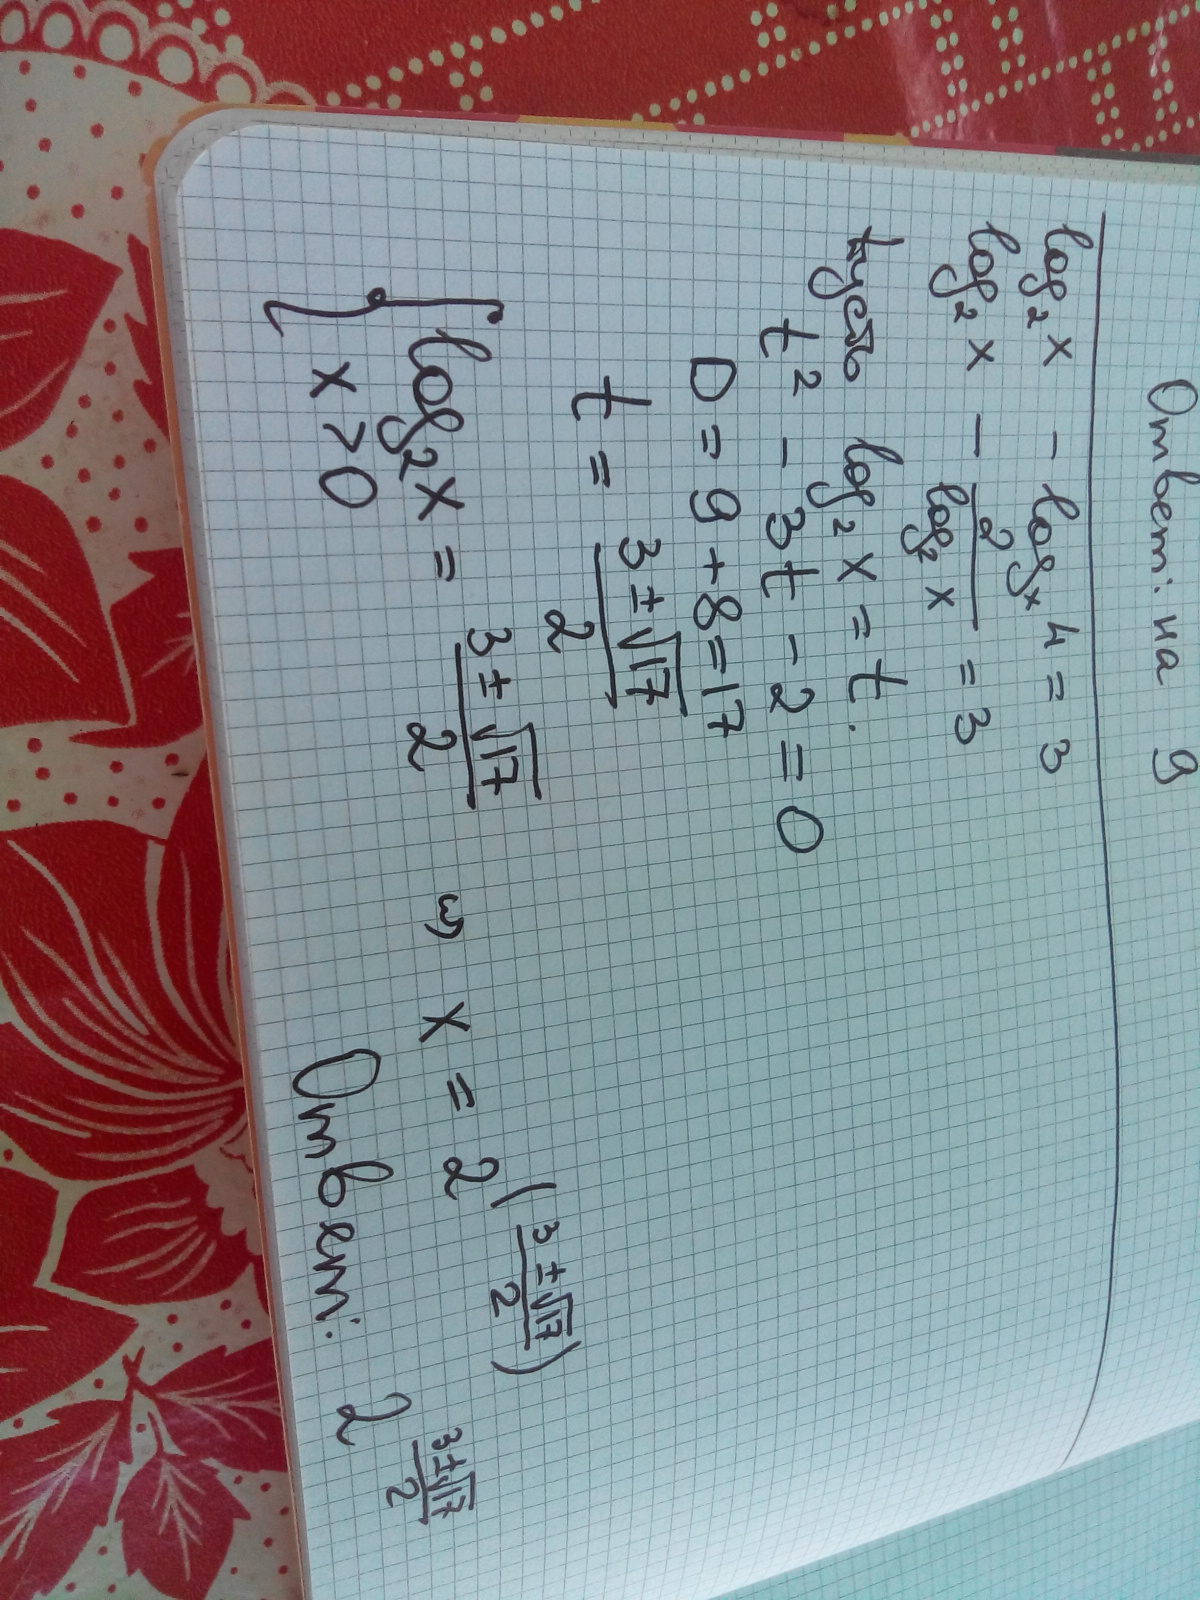 Ответ: на 9
log₂x - logₓ4 = 3
log₂x - 2/log₂x = 3
пусть log₂x = t.
t² - 3t - 2 = 0
D = 9 + 8 = 17
t = (3±√17)/2
{ log₂x = (3±√17)/2 ⇒ x = 2^((3±√17)/2)
x > 0
Ответ: 2^((3±√17)/2)